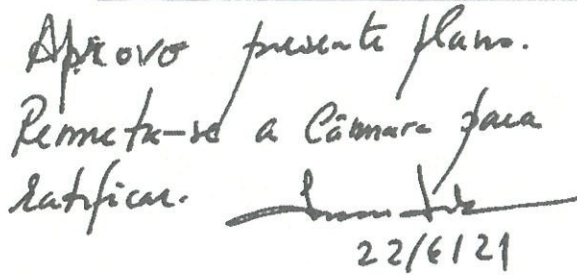 Aprovo presente plano.
Remeta-se a Câmara para
ratificar.
22/6/21